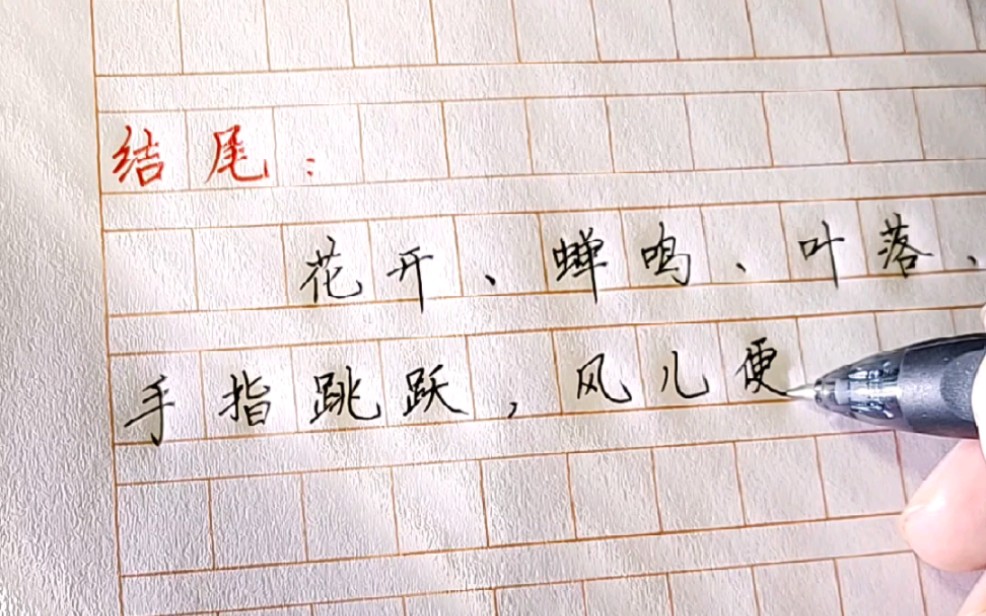 结尾：
花开、蝉鸣、叶落、
手指跳跃，风儿便